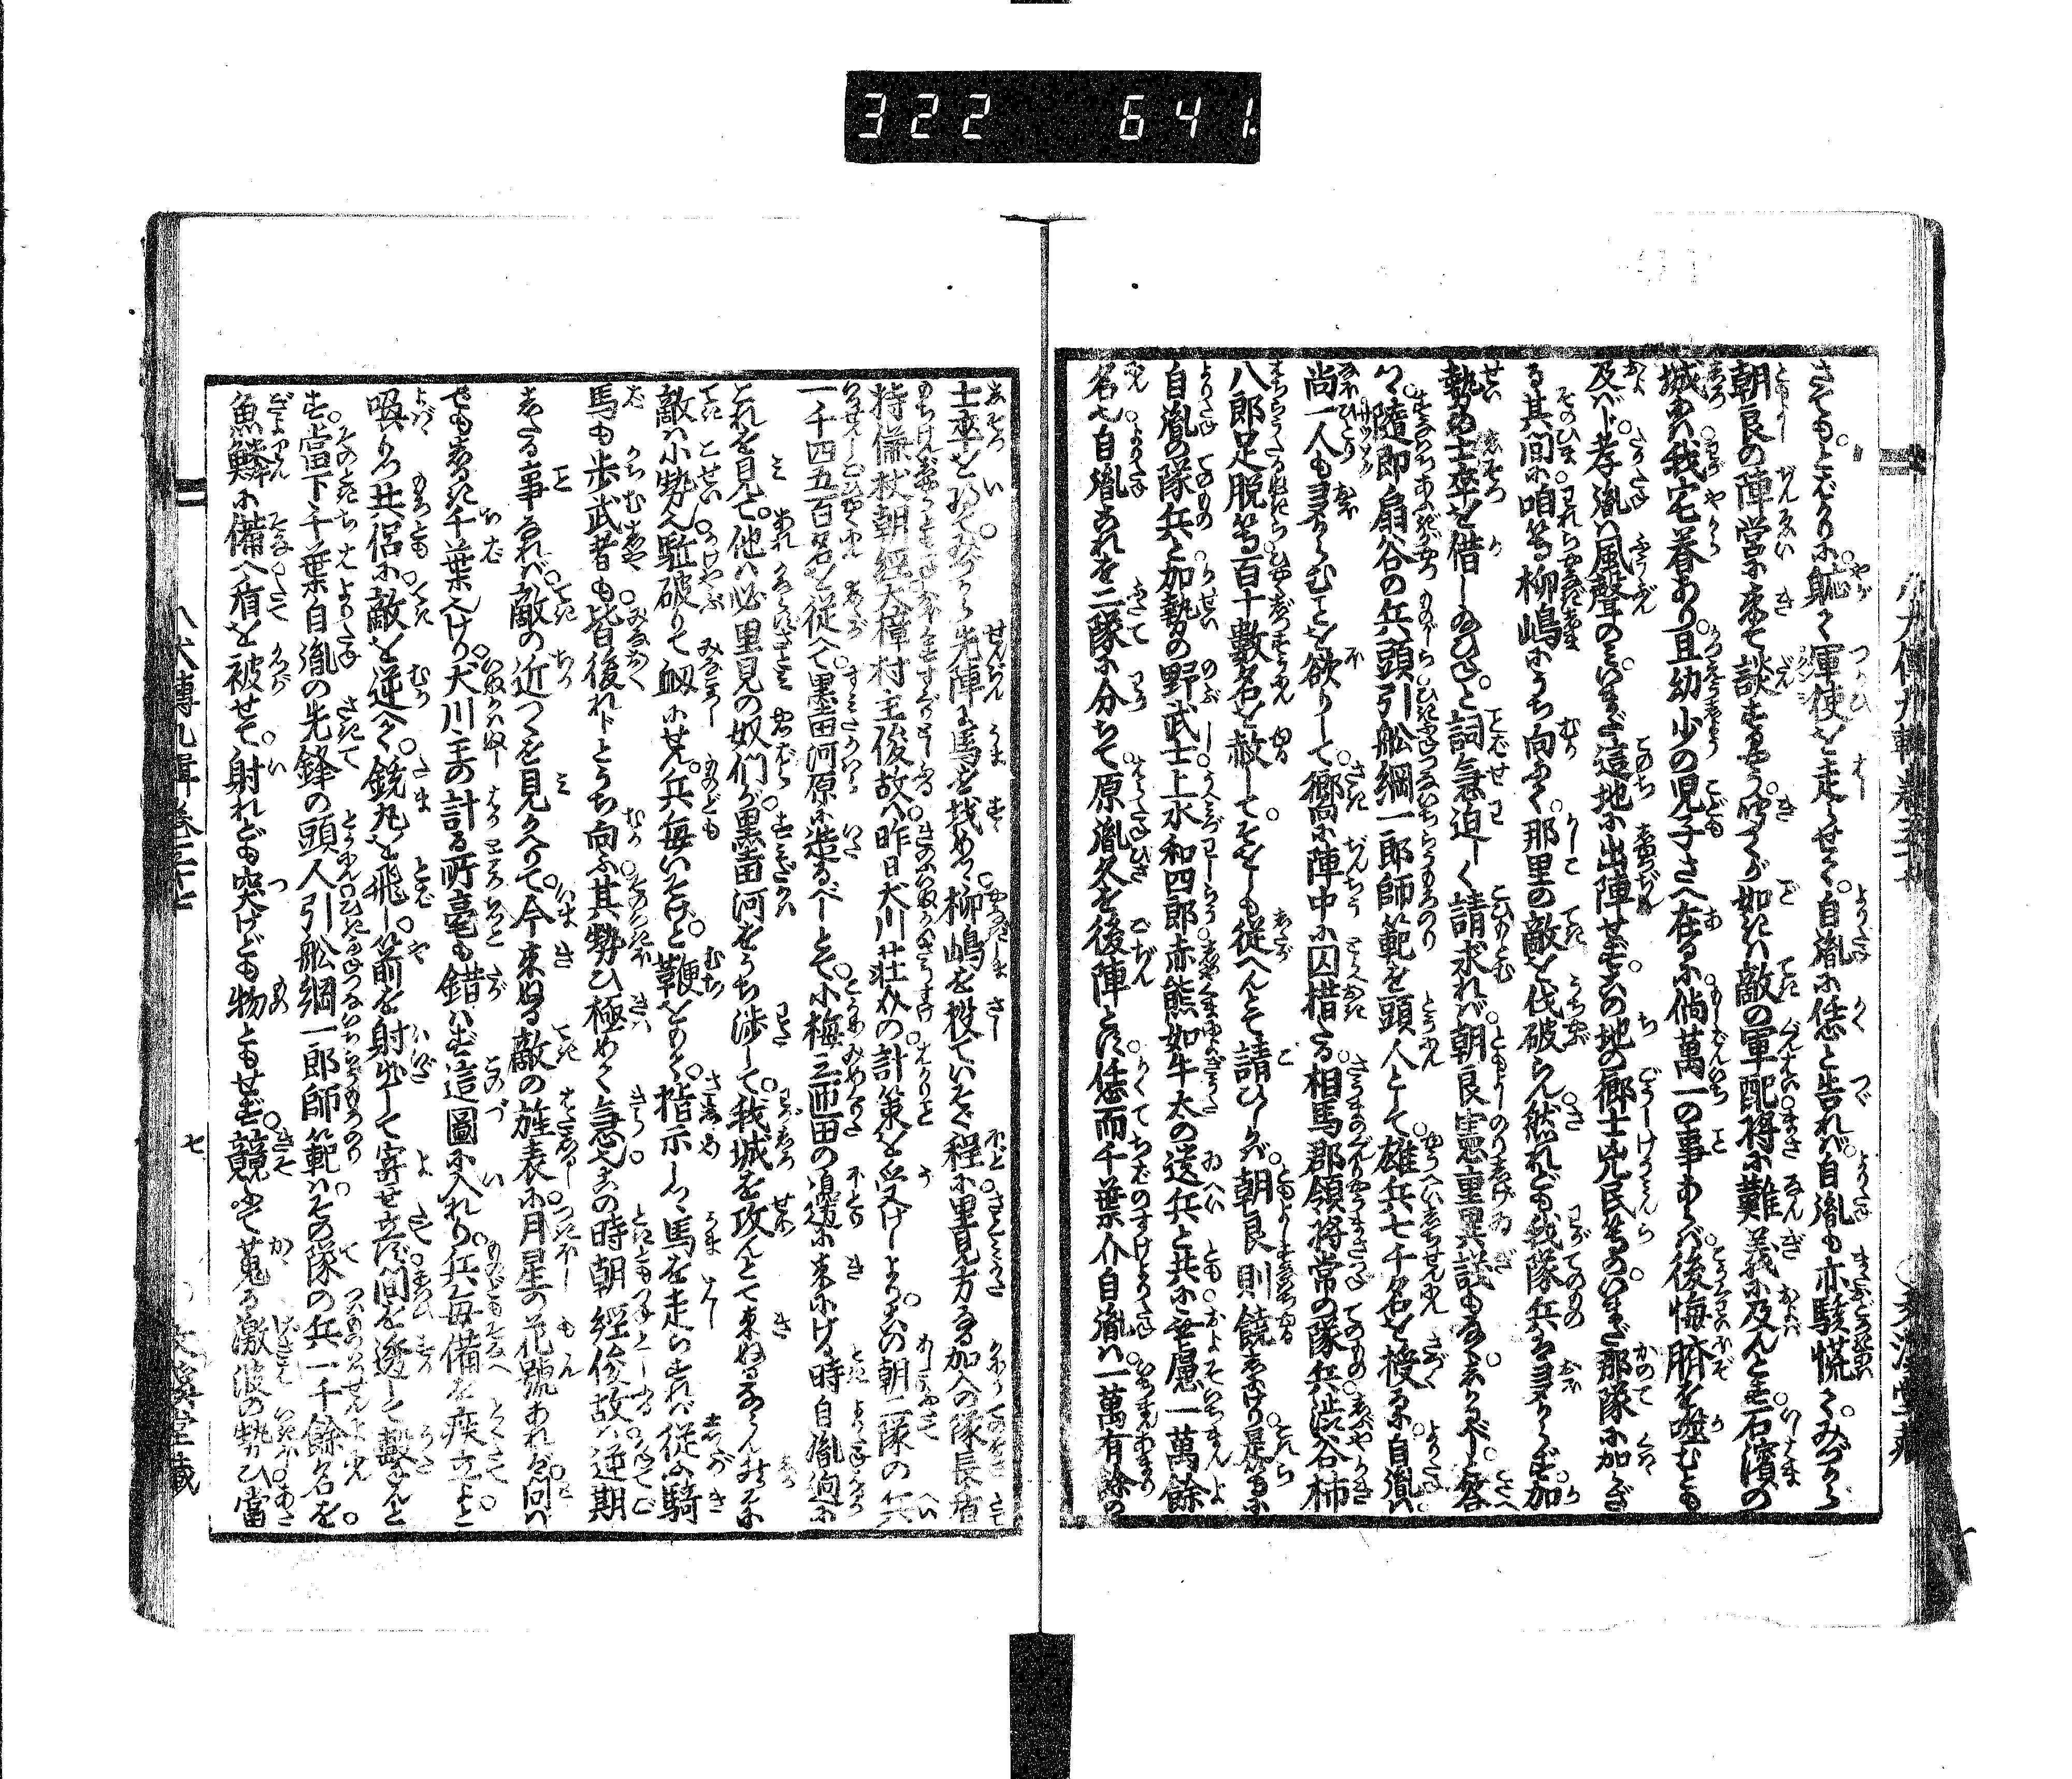 322 641.
さても。とばかりに駭く軍使を走らせて。自胤に恁と告れば。自胤も亦駭慌て。みづから
朝良の陣営に来て談ずるやう。吩くが如きは敵の軍配。将に難義に及んとす。石濱の
城には我宅眷あり。且幼少の児子さへ在るに。倘萬一の事あらば。後悔臍を噬むとも
及ばじ。孝胤は風聲のミ。いまだ這地に出陣せず。その地の郷士兇民等のいまだ那隊に加らざ
る其間に。咱等柳嶋にうち向ふて。那里の敵を伐破らん。然れども我隊兵は多からず。加
勢の士卒を借しねかしと。詞急迫しく請求れば。朝良憲重異議もなく。
隨即扇谷の兵頭引舩綱一郎師範を頭人とて。雄兵七千名を授るに。自胤は
尚一人も多からむことを欲りして。嚮に陣中に囚措たる。相馬郡領将常の隊兵。渋谷柿
八郎足脱等百十數名を赦して。そをしも従へんとて請ひしかば。朝良則饒しけり。是等に
自胤の隊兵と加勢の野武士。上水和四郎赤熊如牛太の送兵と共に。無慮一萬餘
名也。自胤これを二隊に分ちて。原胤久を後陣とす。恁而千葉介自胤は。一萬有餘の
士卒を将て。みづから先陣に馬を找めつ。柳嶋を投ていそぐ程に。里見方なる加人の隊長。
特儀杖朝經。大樟村主俊故は。昨日犬川荘介の計策を受けしより。その朝二隊の兵
一千四五百名を従へて。黒田河原に造るべしとて。小梅三匝田の頭に来にける時。自胤
これを見て。他は必里見の奴們が。黒田河をうち渉して。我城を攻んとて来ぬるならん。
敵は小勢ん。駈破りて衂にせん。兵毎いそげと鞭をあげて。指示しつつ馬を走らすれば。従ふ騎
馬も歩武者も。皆後れじとうち向ふ。其勢ひ極めて急也。その時朝經俊故は。逆期
したる事なれば。敵の近つくを見かへりて。今来ぬる敵の旌表に。月星の花號あれば。問は
でもしるき千葉也けり。犬川主の計る所。毫も錯はず這圖に入れり。兵毎備を疾立よと
喚りつ。共侶に敵を逆へて。銃丸を飛し。箭を射出して。寄せ立ば間を透と撃
ず。當下千葉自胤の先鋒の頭人引舩綱一郎師範は。その隊の兵一千餘名を。
魚鱗に備へ。楯を被せて。射れども突けども物ともせず。競ふて蒐る激波の勢ひ。當
八犬傳九輯卷三十七
七
文溪堂藏